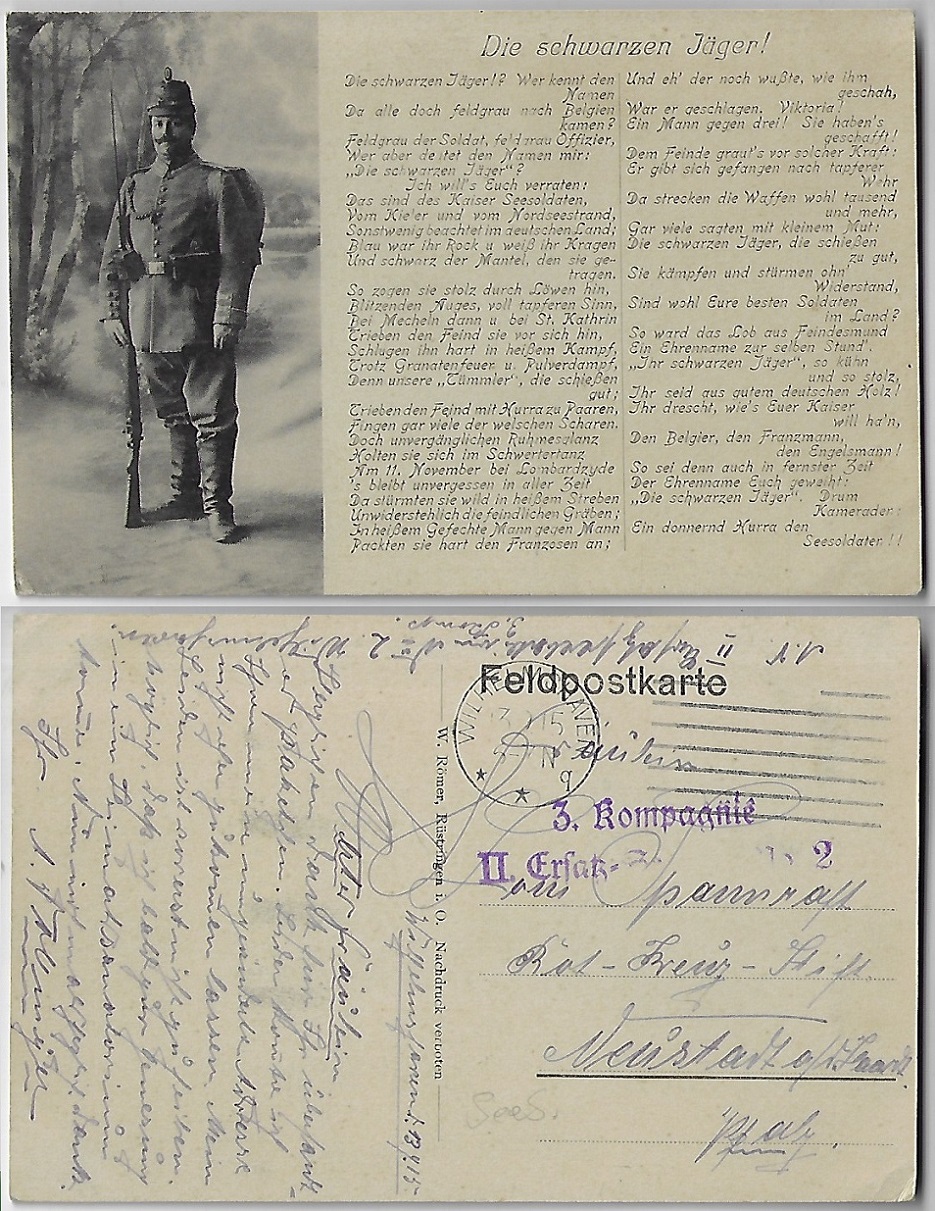 Die schwarzen Jäger!
Die schwarzen Jäger!? Wer kennt den
Namen
Da alle doch feldgrau nach Belgien
kamen?
Feldgrau der Soldat, feldgrau Offizier,
Wer aber deutet den Namen mir:
„Die schwarzen Jäger“?
Ich will's Euch verraten:
Das sind des Kaiser Seesoldaten,
Vom Kieler und vom Nordseestrand,
Sonst wenig beachtet im deutschen Land;
Blau war ihr Rock u weiß ihr Kragen
Und schwarz der Mantel, den sie ge-
tragen.
So zogen sie stolz durch Löwen hin,
Blitzenden Auges, voll tapferen Sinn.
Bei Mecheln dann u bei St. Kathrin
Trieben den Feind sie vor sich hin,
Schlugen ihn hart in heißem Kampf,
Trotz Granatenfeuer u. Pulverdampf,
Denn unsere „Tümmler“, die schießen
gut;
Trieben den Feind mit Hurra zu Paaren,
Fingen gar viele der welschen Scharen.
Doch unvergänglichen Ruhmesglanz
Holten sie sich im Schwertertanz
Am 11. November bei Lombardzyde
's bleibt unvergessen in aller Zeit
Da stürmten sie wild in heißem Streben
Unwiderstehlich die feindlichen Gräben;
In heißem Gefechte Mann gegen Mann
Packten sie hart den Franzosen an;
Und eh' der noch wußte, wie ihm
geschah,
War er geschlagen. Viktoria!
Ein Mann gegen drei! Sie haben's
geschafft!
Dem Feinde graut's vor solcher Kraft:
Er gibt sich gefangen nach tapferer
Wehr
Da strecken die Waffen wohl tausend
und mehr,
Gar viele sagten mit kleinem Mut:
Die schwarzen Jäger, die schießen
zu gut,
Sie kämpfen und stürmen ohn'
Widerstand,
Sind wohl Eure besten Soldaten
im Land?
So ward das Lob aus Feindesmund
Ein Ehrenname zur selben Stund'.
„Ihr schwarzen Jäger“, so kühn
und so stolz,
Ihr seid aus gutem deutschen Holz!
Ihr drescht, wie's Euer Kaiser
will ha'n,
Den Belgier, den Franzmann,
den Engelsmann!
So sei denn auch in fernster Zeit
Der Ehrenname Euch geweiht:
„Die schwarzen Jäger“. Drum
Kameraden:
Ein donnernd Hurra den
Seesoldaten!!
Feldpostkarte
WILHELMSHAVEN
15
N
q
Fräulein
3. Kompagnie
II. Ersatz-
2
Spannraft
Rot-Kreuz-Stift
Neustadt a/d Haardt
Pfalz
SeeS.
W. Römer, Rüstringen i. O. Nachdruck verboten
Wilhelmshaven d. 13.4.15.
Fräulein
Herzlichen Dank
Leider konnte ich
Ihnen meine
nicht eher zukommen lassen. Mein
Leiden ist
daß ich bald zur Genesung
in ein Heimatsanatorium
komme.
Ihr
3. Komp.
II
2
Wilhelmshaven.